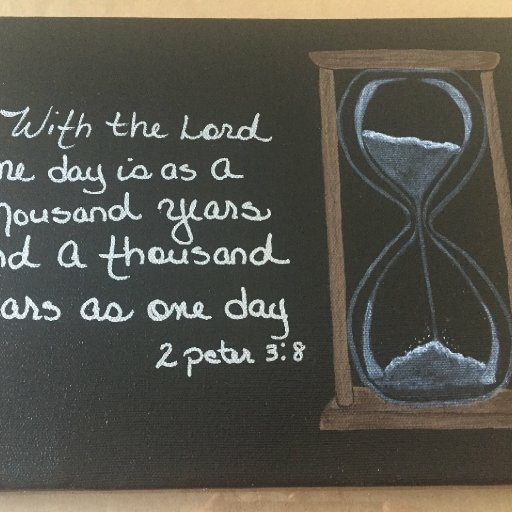 With the Lord
ne day is as a
housand years
nd a thousand
ars as one day
2 peter 3:8